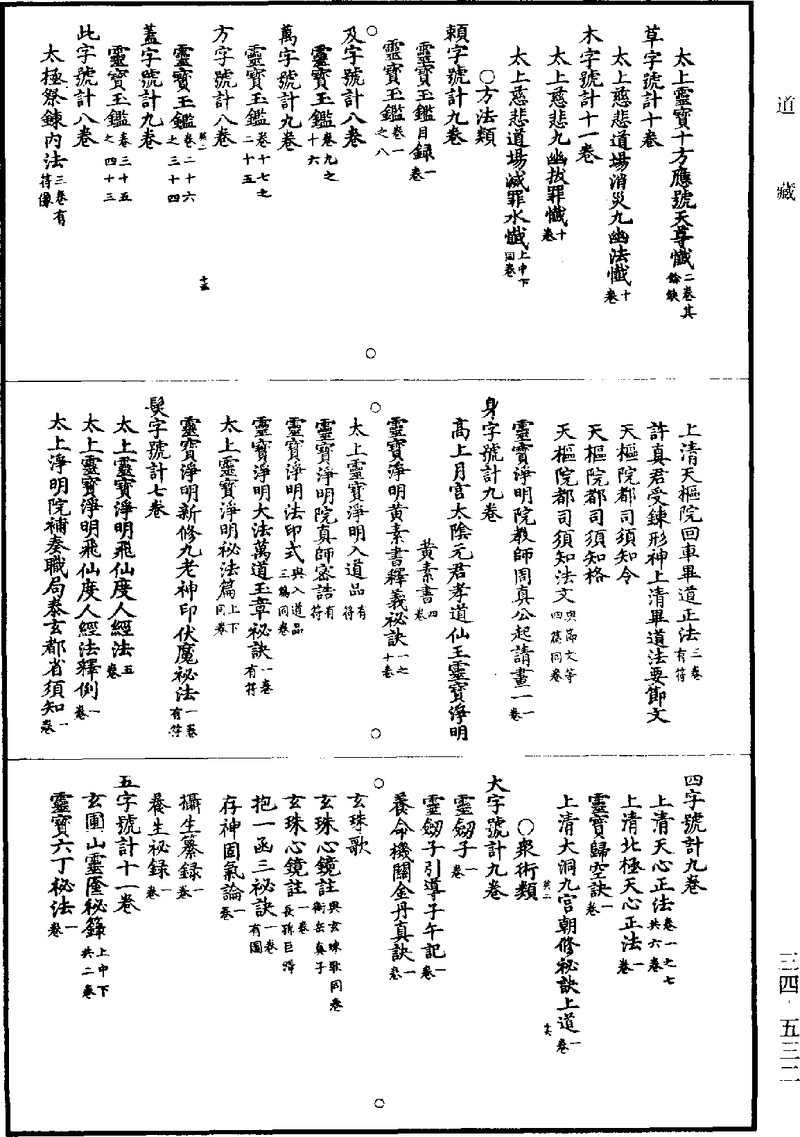 道藏
太上靈寶十方應號天尊懺二卷其餘缺
草字號計十卷
太上慈悲道場消災九幽法懺十卷
木字號計十一卷
太上慈悲九幽拔罪懺十卷
太上慈悲道場滅罪水懺上中下同卷
○方法類
賴字號計九卷
靈寶玉鑑目録一卷
靈寶玉鑑卷一之八
及字號計八卷
靈寶玉鑑卷九之十六
萬字號計九卷
靈寶玉鑑卷十七之二十五
方字號計八卷
靈寶玉鑑卷二十六之三十四
蓋字號計九卷
靈寶玉鑑卷三十五之四十三
此字號計八卷
太極祭鍊内法三卷有符像
上清天樞院回車畢道正法三卷有符
許真君受鍊形神上清畢道法要節文
天樞院都司須知令
天樞院都司須知格
天樞院都司須知法文與節文等四篇同卷
靈寶淨明院教師周真公起請畫一一卷
身字號計九卷
高上月宮太陰元君孝道仙王靈寶淨明
黄素書四卷
靈寶淨明黄素書釋義祕訣一之十卷
太上靈寶淨明入道品有符
靈寶淨明院真師密誥有符
靈寶淨明法印式與入道品三篇同卷
靈寶淨明大法萬道玉章祕訣一卷有符
太上靈寶淨明祕法篇上下同卷
靈寶淨明新修九老神印伏魔祕法一卷有符
髮字號計七卷
太上靈寶淨明飛仙度人經法五卷
太上靈寶淨明飛仙度人經法釋例一卷
太上淨明院補奏職局泰玄都省須知一卷
四字號計九卷
上清天心正法卷一之七共六卷
上清北極天心正法一卷
靈寶歸空訣一卷
上清大洞九宮朝修祕訣上道一卷
○衆術類
大字號計九卷
靈劒子一卷
靈劒子引導子午記一卷
養命機關金丹真訣一卷
玄珠歌
玄珠心鏡註與玄珠歌同卷衡岳真子
玄珠心鏡註一卷長孫巨澤
抱一函三祕訣一卷有圖
存神固氣論一卷
攝生纂録一卷
養生祕録一卷
五字號計十一卷
玄圃山靈𠥱祕籙上中下共二卷
靈寶六丁祕法一卷
三四·五三二